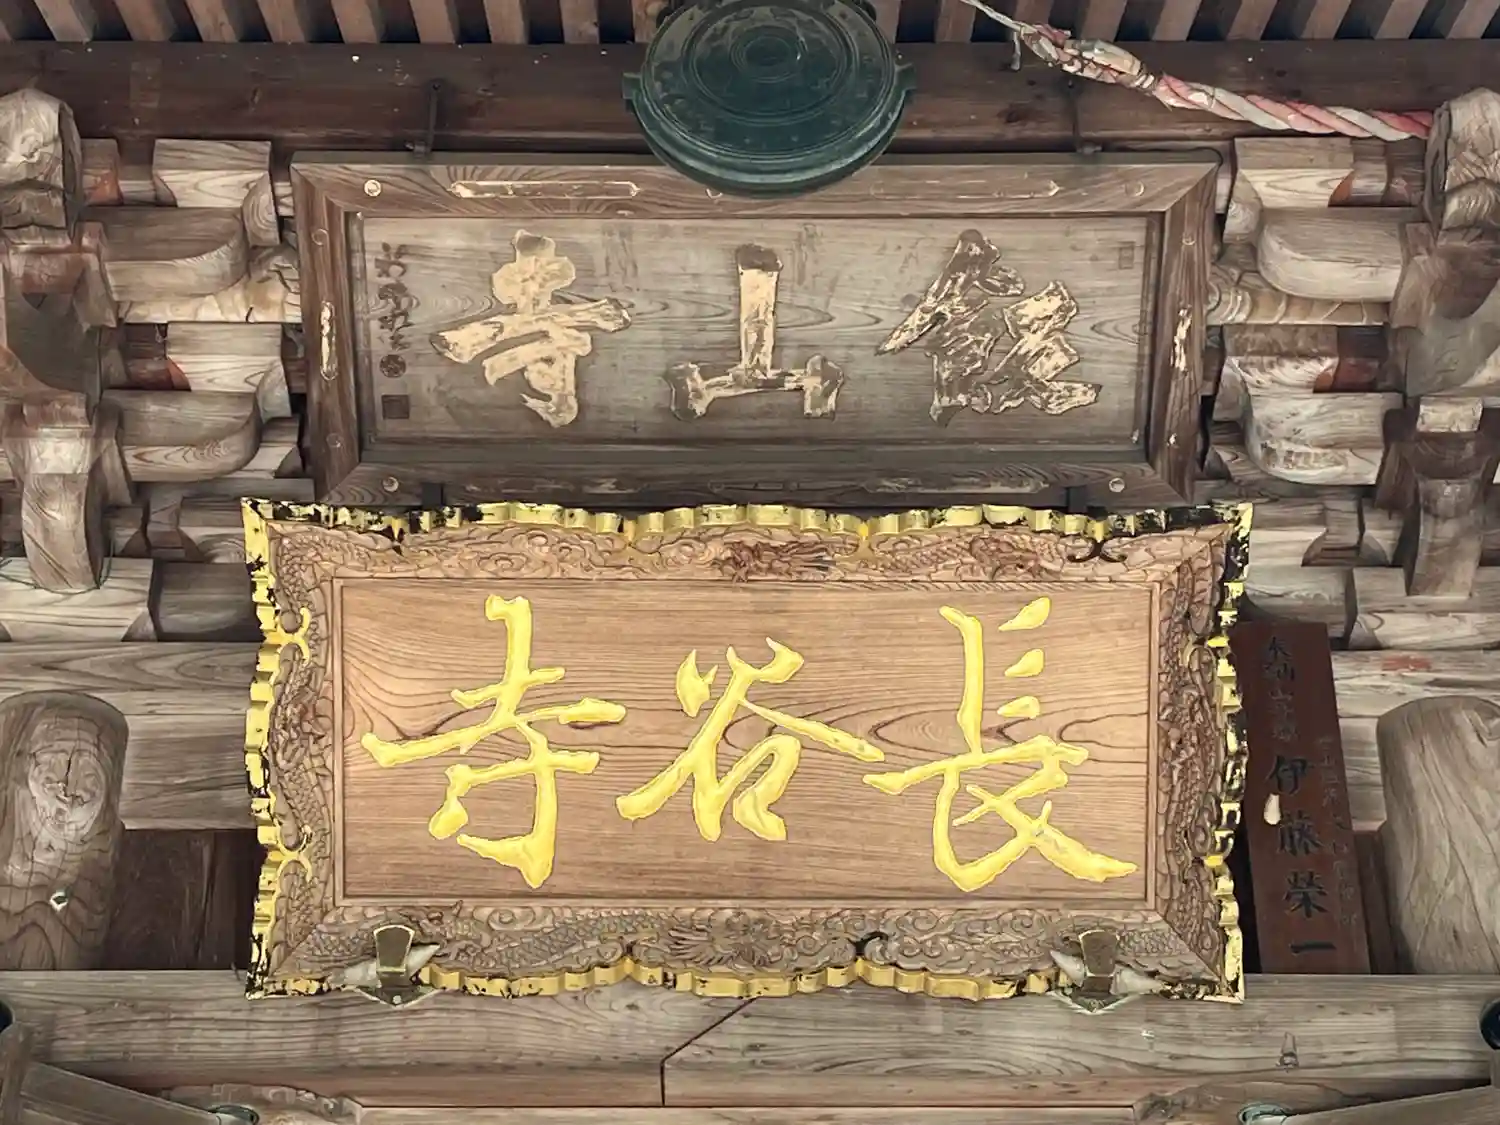 飯山寺
長谷寺
伊藤榮一